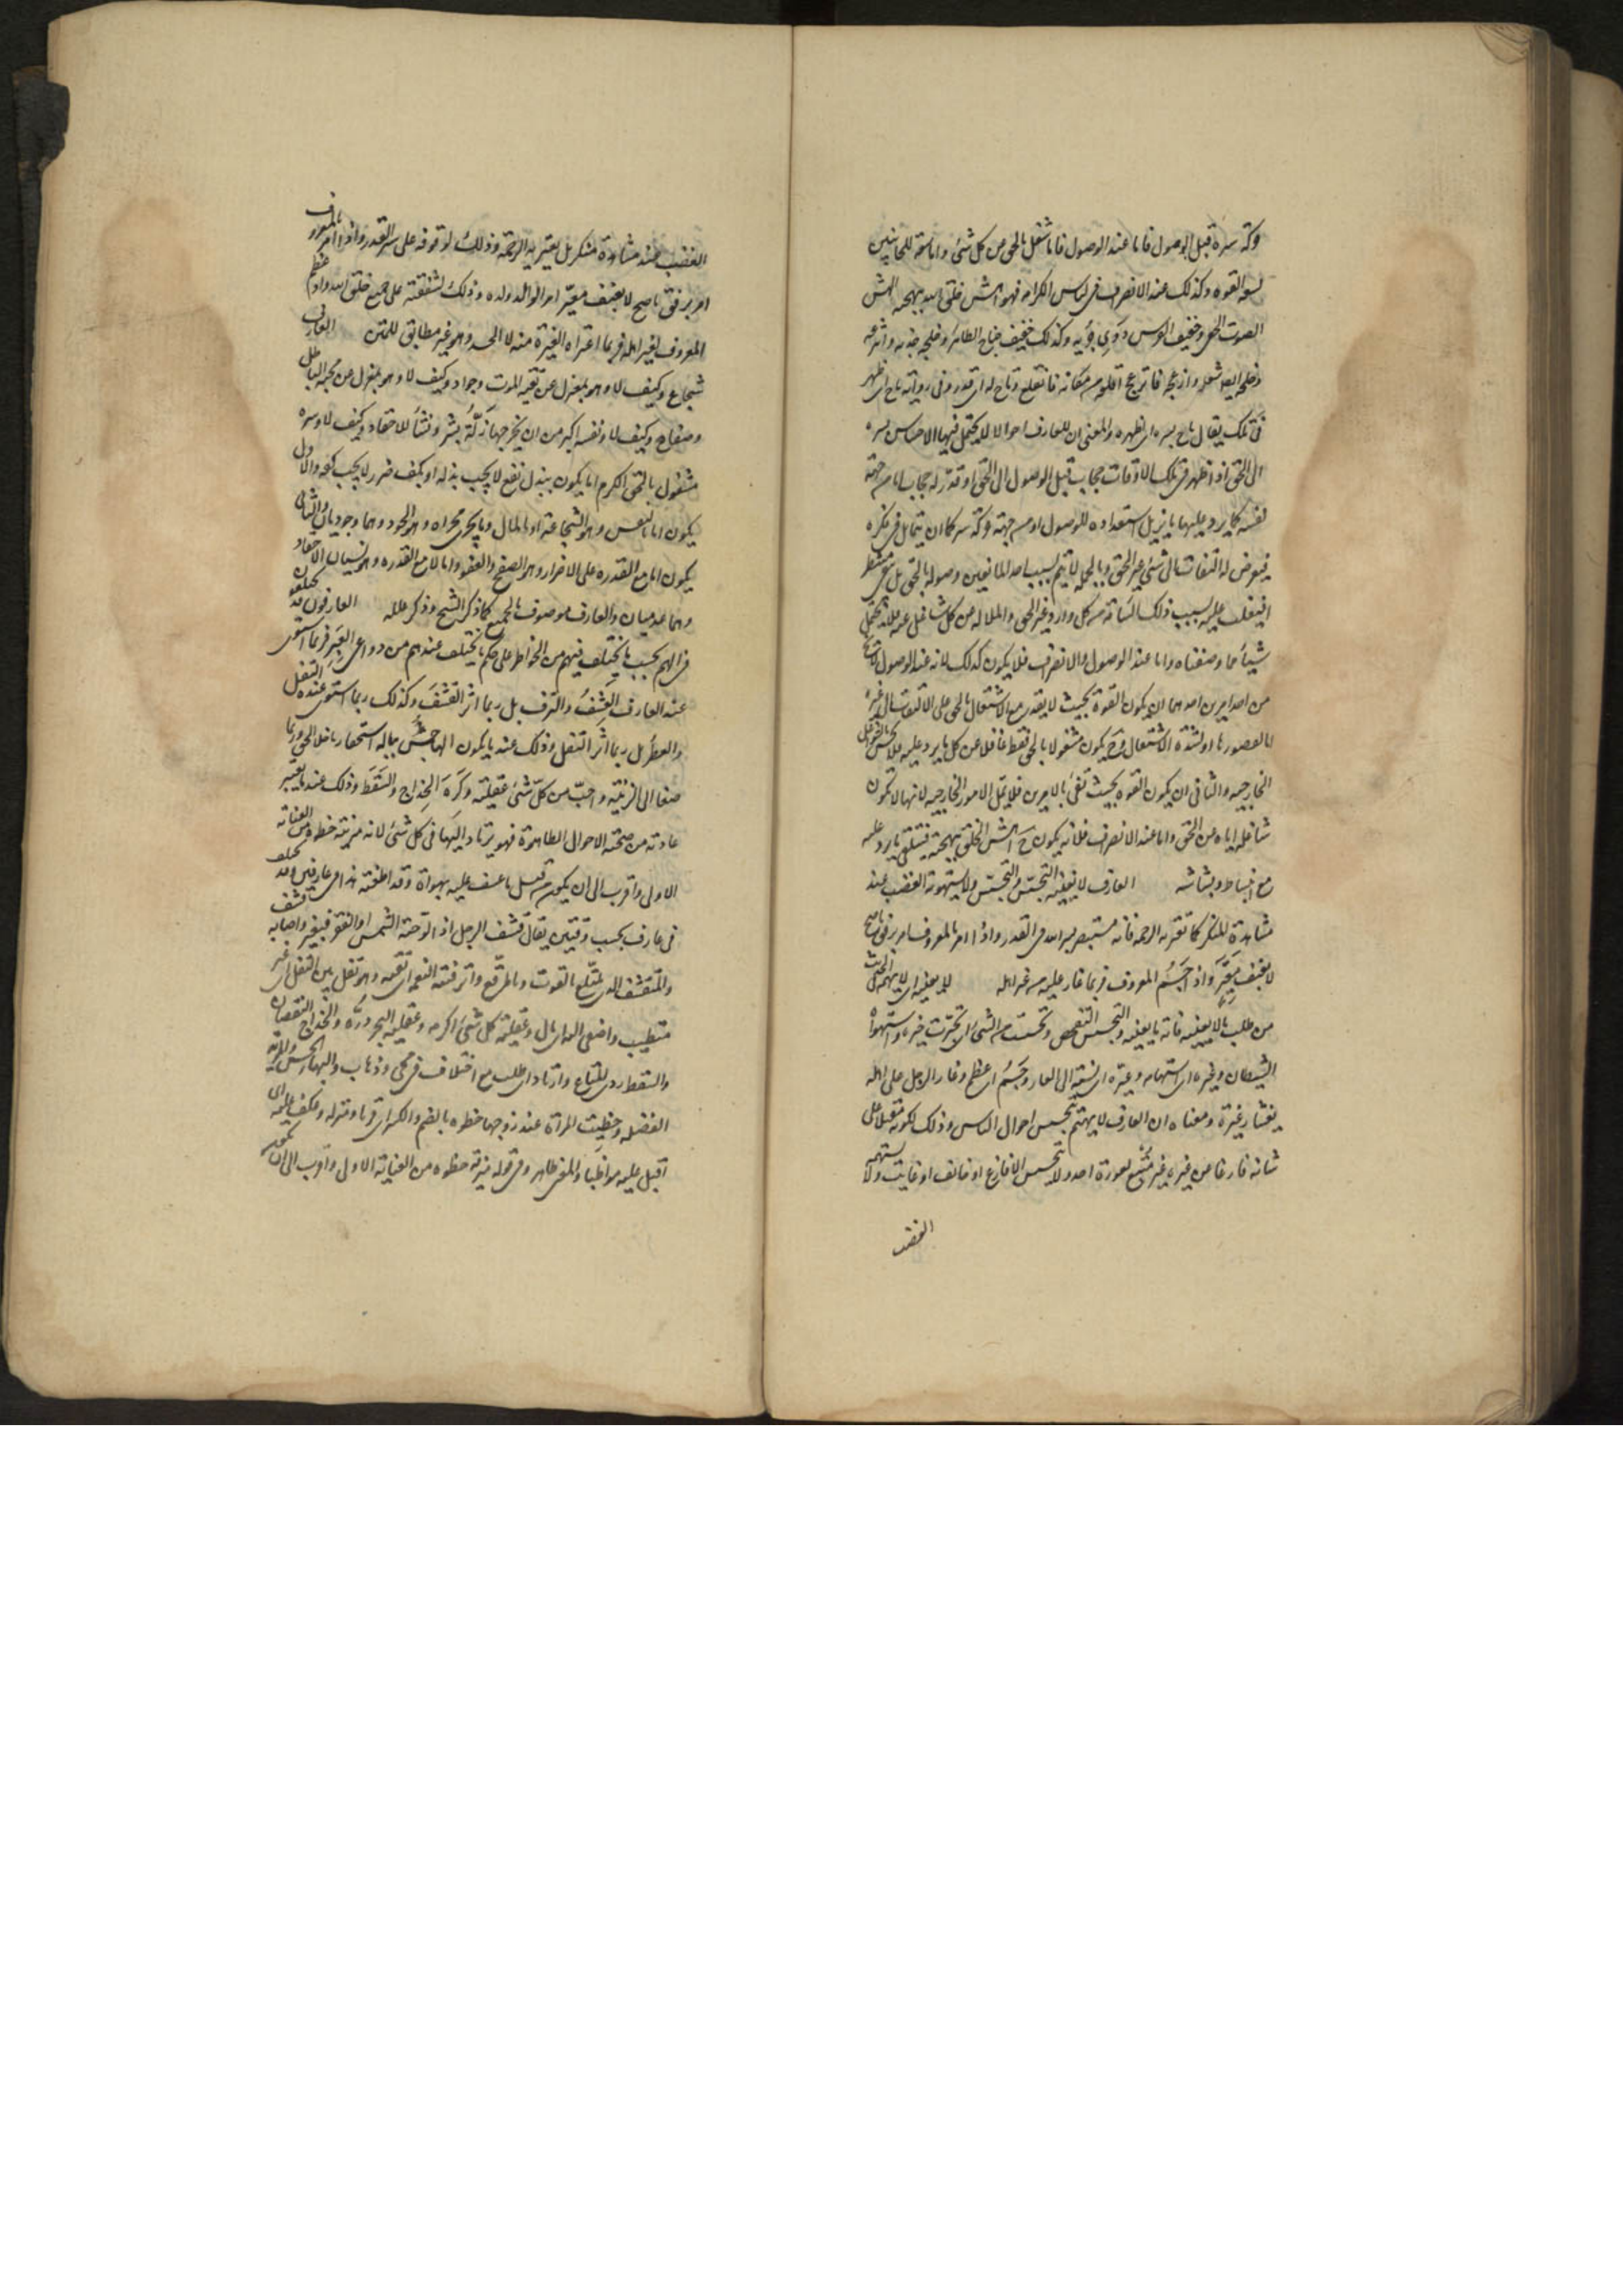 وكة سره قبل الوصول فاما عند الوصول فاما شغل بالحق من كل شئ واما سعة للجانبين
لسعة القوة وكذلك عند الانصراف فى لباس الكرامة فهو اهش خلق الله ببهجته الهمس
الصوت الخفى وحفيف الفرس دوى جريه وكذلك حفيف جناح الطائر وخلجه جذبه وانتزعه
وخلجه ايضا شغله وازعجه فانزعج اقلعه من مكانه فانقلع وتاح له اى قدر وفى رواية باح اى ظهر
فى تلك يقال باح بسره اى اظهره والمعنى ان للعارف احوالا لا يحتمل فيها الاحساس بسره
الى الحق اذا ظهر فى تلك الاوقات حجاب قبل الوصول الى الحق او قدر له حجاب اما من جهة
نفسه كما يرد عليها ما يزيل استعداده للوصول او من جهة حركة سره كما ان يتمايل فى فكره
فيعرض له التفات الى شئ غير الحق وبالجملة لا يتم بسبب احد المانعين وصوله بالحق بل يبقى منتظرا
فيغلب عليه بسبب ذلك السآمة من كل وارد غير الحق والملالة من كل شاغل عنه فلا يحتمل
شيئا مما وصفناه واما عند الوصول والانصراف فلا يكون كذلك لانه عند الوصول لا يخ
من احد امرين احدهما ان يكون القوة بحيث لا يقدر مع الاشتغال بالحق على الالتفات الى غيره
اما لقصورها او لشدة الاشتغال وح يكون مشغولا بالحق فقط غافلا عن كل ما يرد عليه فلا يحس بالشواغل
الخارجيه والثانى ان يكون القوه بحيث تفى بالامرين فلا يمل الامور الخارجيه لانها لا تكون
شاغلة اياه عن الحق واما عند الانصراف فلانه يكون ح اهش الخلق ببهجته فيتلقى ما يرد عليه
مع انبساط وبشاشه العارف لا يعنيه التجسس والتحسس ولا يستهويه الغضب عند
مشاهدة المنكر كما تعتريه الرحمه فانه مستبصر بسر الله فى القدر واذا امر بالمعروف امر برفق ناصح
لا بعنف معير واذا جسم المعروف فربما غار عليه من غير اهله لا يعنيه اى لا يهمه الحديث
من طلب ما لا يعنيه فاته ما يعنيه والتجسس التفحص وتحسست من الشئ اى تخبرت خبره واستهواه
الشيطان وغيره اى استهامه وعيره اى نسبه الى العار وجسم اى عظم وغار الرجل على اهله
يغار غيرة ومعناه ان العارف لا يهتم بتجسس احوال الناس وذلك لكونه مقبلا على
شانه فارغا من غيره غير متتبع لعورة احد ولا يتجسس الا فارغ او خائف او غايب ولا يستهويه
الغضب
الغضب عند مشاهدة منكر بل يعتريه الرحمة وذلك لوقوفه على سر القدر واذا امر بالمعروف
امر برفق ناصح لا بعنف معير امر الوالد ولده وذلك لشفقته على جميع خلق الله واذا عظم
المعروف لغير اهله فربما اعتراه الغيرة منه لا الحسد وهو غير مطابق للمتن العارف
شجاع وكيف لا وهو بمعزل عن تقية الموت وجواد وكيف لا وهو بمعزل عن محبة الباطل
وصفاح وكيف لا ونفسه اكبر من ان يجرحها زلة بشر ونساء للاحقاد وكيف لا وسره
مشغول بالحق الكرم اما يكون ببذل نفع لا يجب بذله او بكف ضرر لا يجب كفه والاول
يكون اما بالنفس وهو الشجاعة او بالمال وما يجرى مجراه وهو الجود وهما وجوديان والثانى
يكون اما مع القدره على الاضرار وهو الصفح والعفو واما لا مع القدره وهو نسيان الاحقاد
وهما عدميان والعارف موصوف بالجميع كما ذكر الشيخ وذكر علله العارفون قد يختلفون
فى الهمم بحسب ما يختلف فيهم من الخواطر على حكم ما يختلف عندهم من دواعى العبر فربما استوى
عند العارف القشف والترف بل ربما اثر القشف وكذلك ربما استوى عنده التفل
والعطر بل ربما اثر التفل وذلك عند ما يكون الهاجس بباله استحقار ما خلا الحق وربما
صغا الى الزينة واحب من كل شئ عقيلته وكره الخداج والسقط وذلك عند ما يعتبر
عادته من صحبته الاحوال الطاهرة فهو يرتاد البهاء فى كل شئ لانه مزية حظوة من العناية
الاولى واقرب الى ان يكون من قبيل ما عكف عليه بهواه وقد يختلف هذا فى عارفين وقد يختلف
فى عارف بحسب وقتين يقال قشف الرجل اذا لوحته الشمس او الفقر فتغير واصابه قشف
والمتقشف الذى يتبلغ بالقوت وبالمرقع واترفته النعمة اى نعمته وهو تفل بين التفل اى غير
متطيب واصغى اليه اى مال وعقيلة كل شئ اكرمه وعقيلة البحر دره والخداج النقصان
والسقط ردى المتاع وارتاد اى طلب مع اختلاف فى مجى وذهاب والبهاء الحسن والمزية
الفضيلة وحظيت المرأة عند زوجها حظوه بالضم والكسر اى قربا ومنزله وعكف عليه اى
اقبل عليه مواظبا والمعنى ظاهر وفى قوله مزية حظوه من العناية الاولى واقرب الى ان يكون